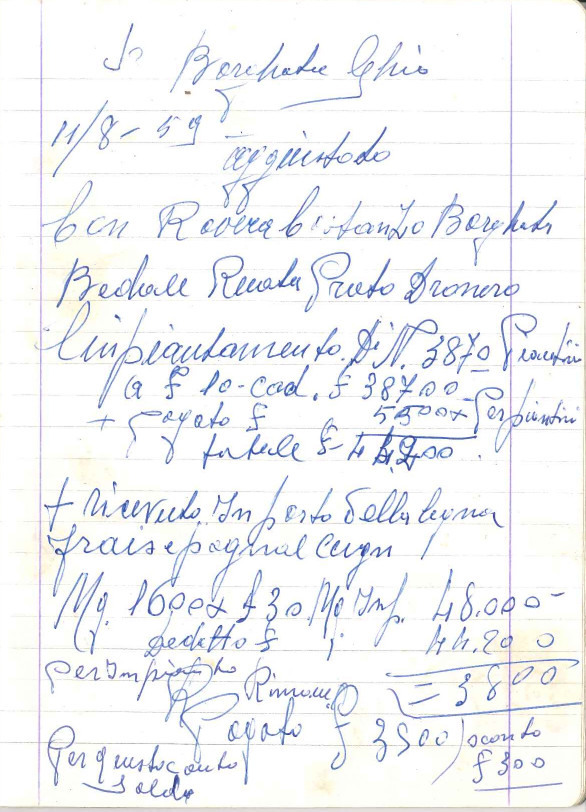 Io Borghata Ghio
11/8-59
aggiustato
Con Rovera Costanzo Borghata
Bedale Renata Prato Dronero
l'inpiantamento Di N. 3870 Piantini
a £ 10-cad. £ 38700
+ pagato £ 5500 x Per piantini
totale £ 44200
+ ricevuto Inporto della legna
Mg. 1600 x £ 30 Mg Inp. 48.000-
dedotto £ 44.200
per Impianto
Rimane = 3800
Pagato £ 3500 ) sconto
£ 300
Per questo conto
Saldo